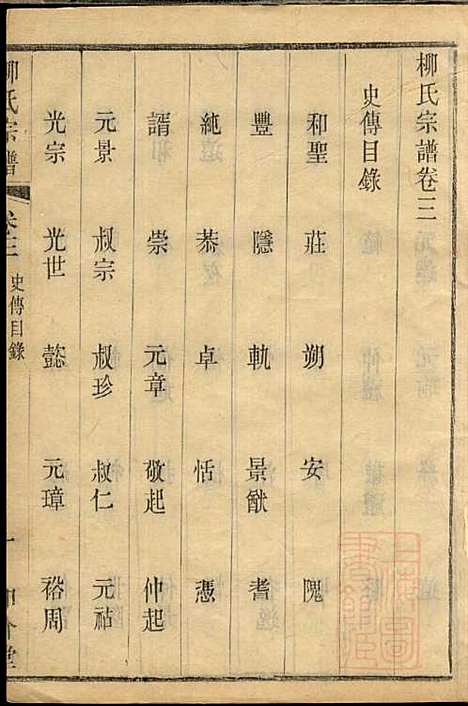 柳氏宗譜卷三
史傳目錄
和聖 莊 朔 安 隗
豐 隱 軌 景猷 耆
純 恭 卓 恬 憑
諝 崇 元章 敬起 仲起
元景 叔宗 叔珍 叔仁 元祜
光宗 光世 懿 元璋 裕周
柳氏宗譜 卷三 史傳目錄 一